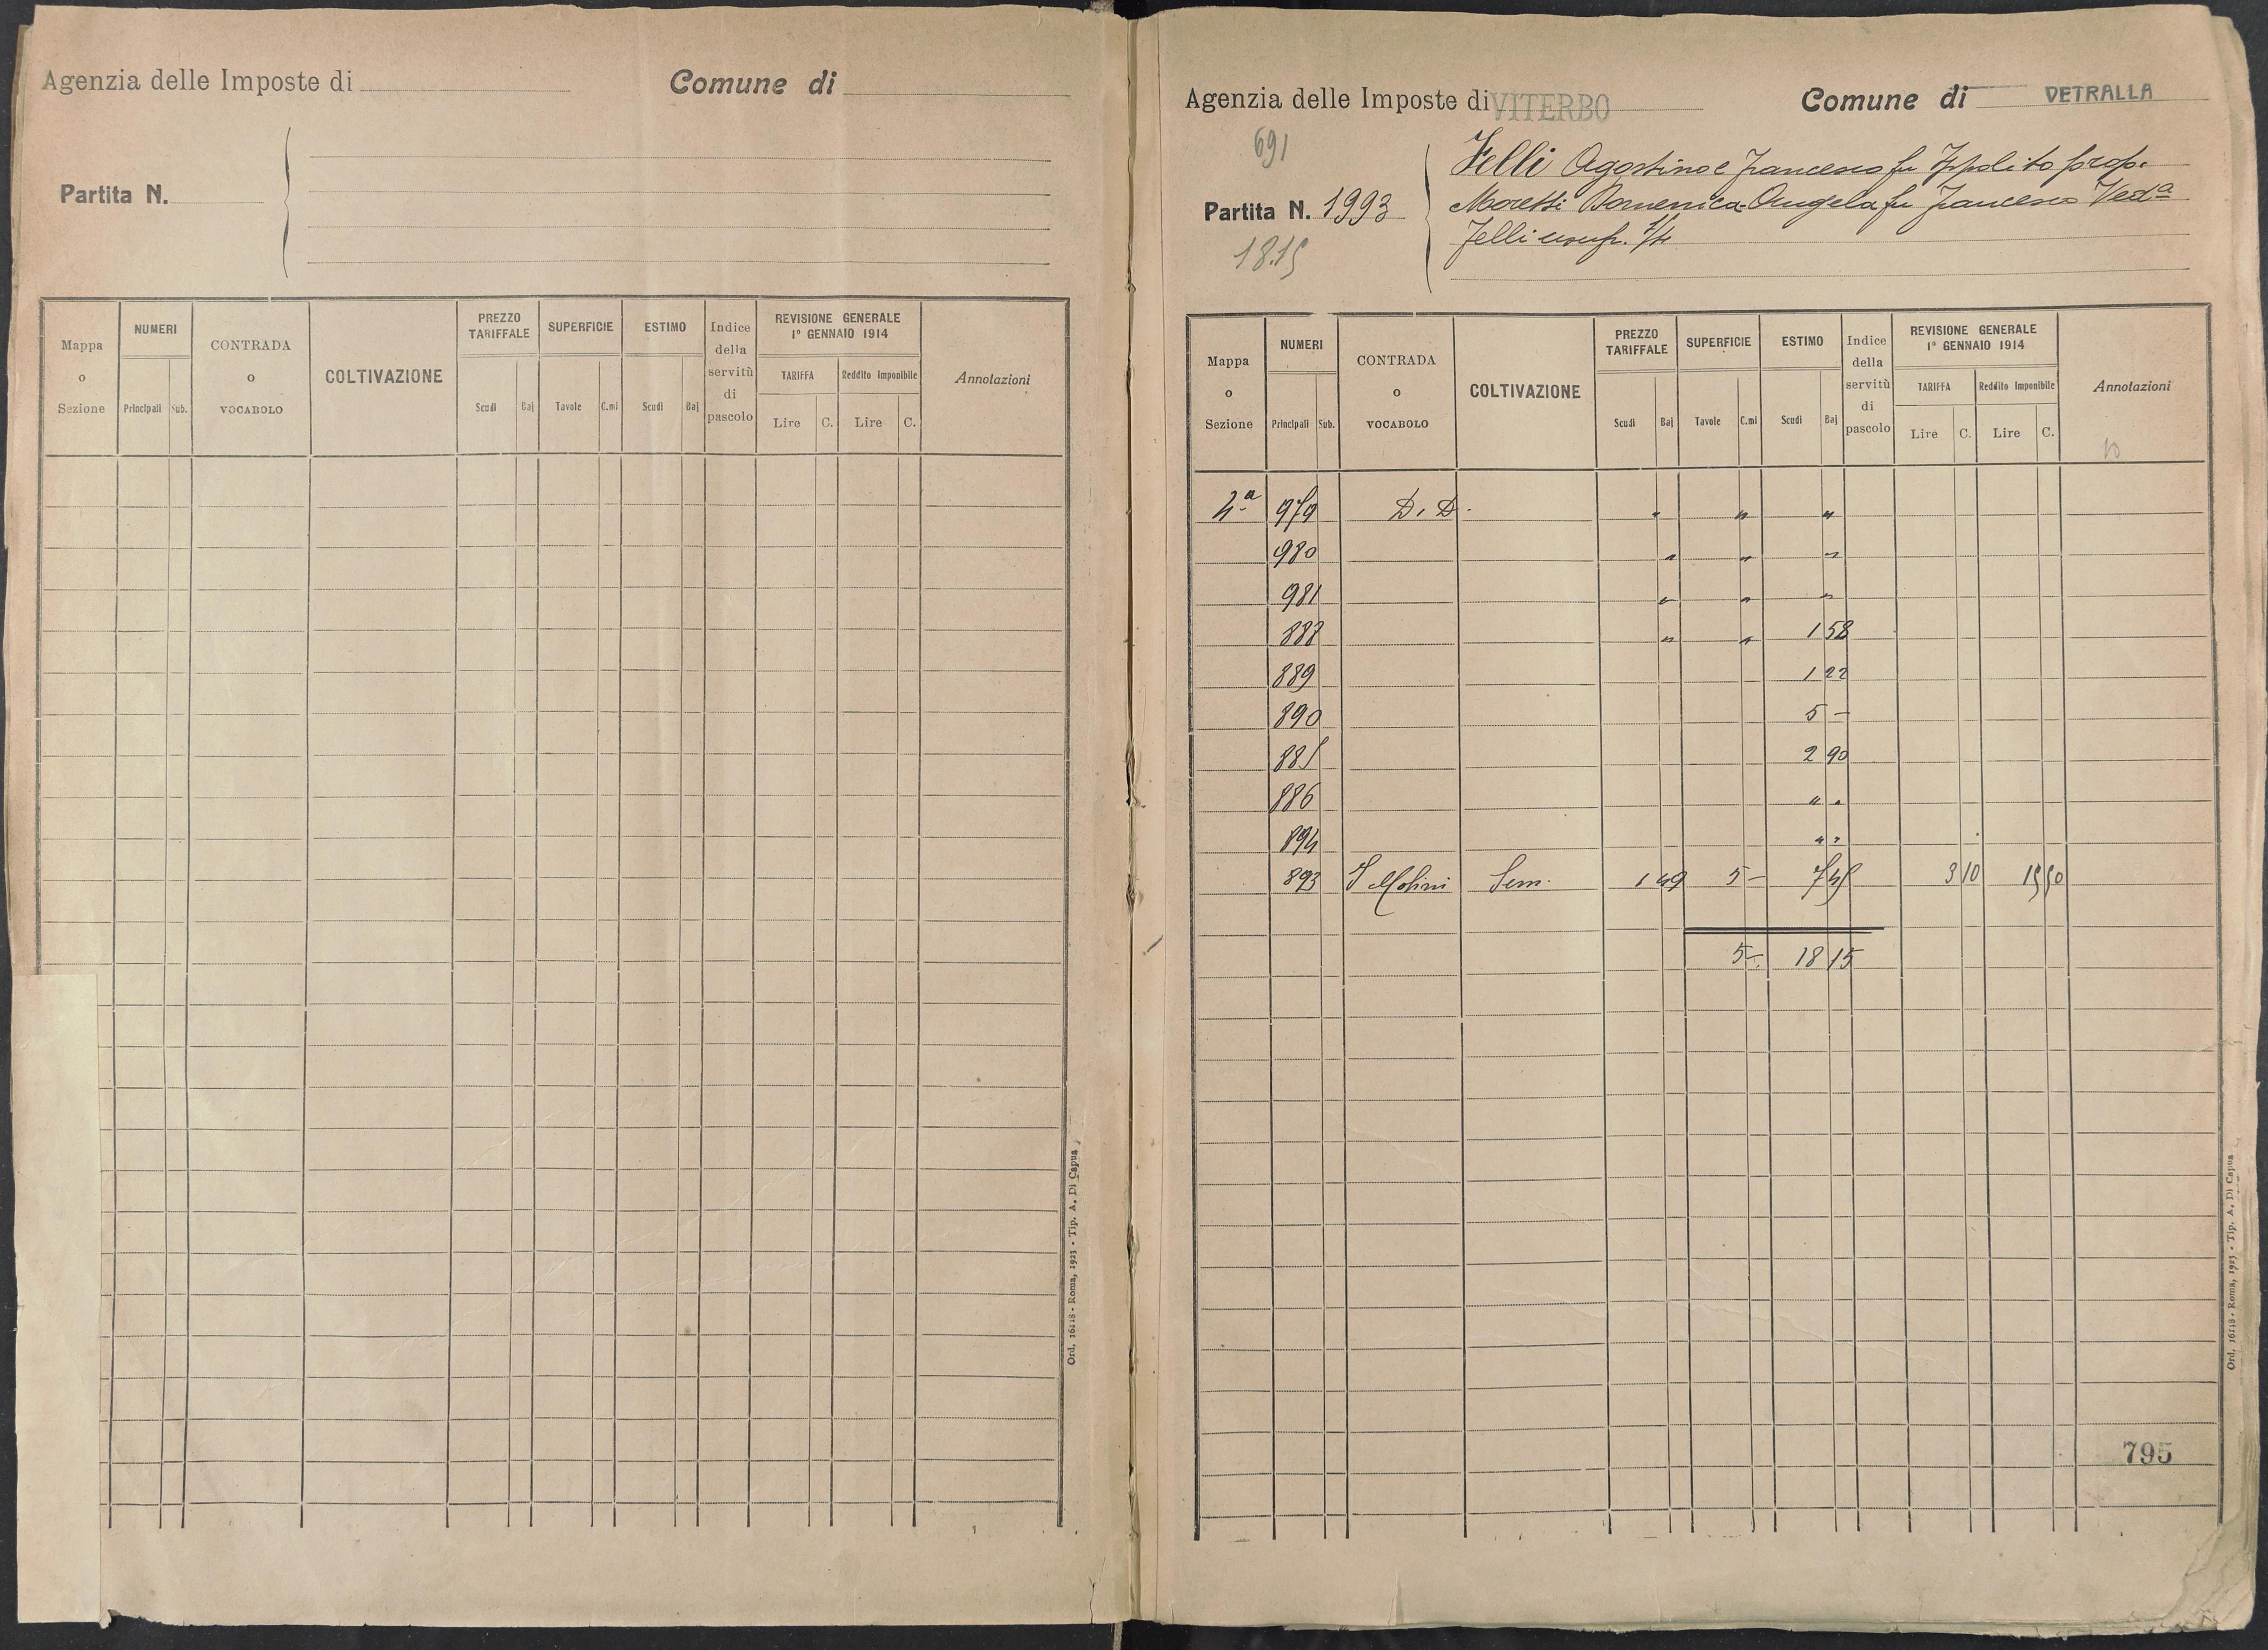 Agenzia delle Imposte di
Comune di
Partita N.
Mappa o Sezione
NUMERI
Principali Sub.
CONTRADA o VOCABOLO
COLTIVAZIONE
PREZZO TARIFFALE
Scudi Baj
SUPERFICIE
Tavole C.mi
ESTIMO
Scudi Baj
Indice della servitù di pascolo
REVISIONE GENERALE
1° GENNAIO 1914
TARIFFA Reddito Imponibile
Lire C. Lire C.
Annotazioni
Ord. 16118 - Roma, 1923 - Tip. A. Di Capua
Agenzia delle Imposte di VITERBO
Comune di VETRALLA
691
Partita N. 1993
18.15
Felli Agostino e Francesco fu Ippolito prop.
Moretti Domenica-Angela fu Francesco Ved.a
Felli usuf. 1/4
Mappa o Sezione
NUMERI
Principali Sub.
CONTRADA o VOCABOLO
COLTIVAZIONE
PREZZO TARIFFALE
Scudi Baj
SUPERFICIE
Tavole C.mi
ESTIMO
Scudi Baj
Indice della servitù di pascolo
REVISIONE GENERALE
1° GENNAIO 1914
TARIFFA Reddito Imponibile
Lire C. Lire C.
Annotazioni
4a 979 D. D. " " "
980 " " "
981 " " "
888 " " 1 58
889 1 22
890 5 -
885 2 90
886 " "
894 " "
893 I Molini Sem. 1 49 5 - 7 45 3 10 15 50
5 - 18 15
795
Ord. 16118 - Roma, 1923 - Tip. A. Di Capua